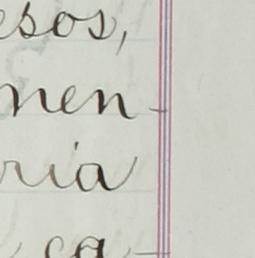 esos,
men-
ria
ca-